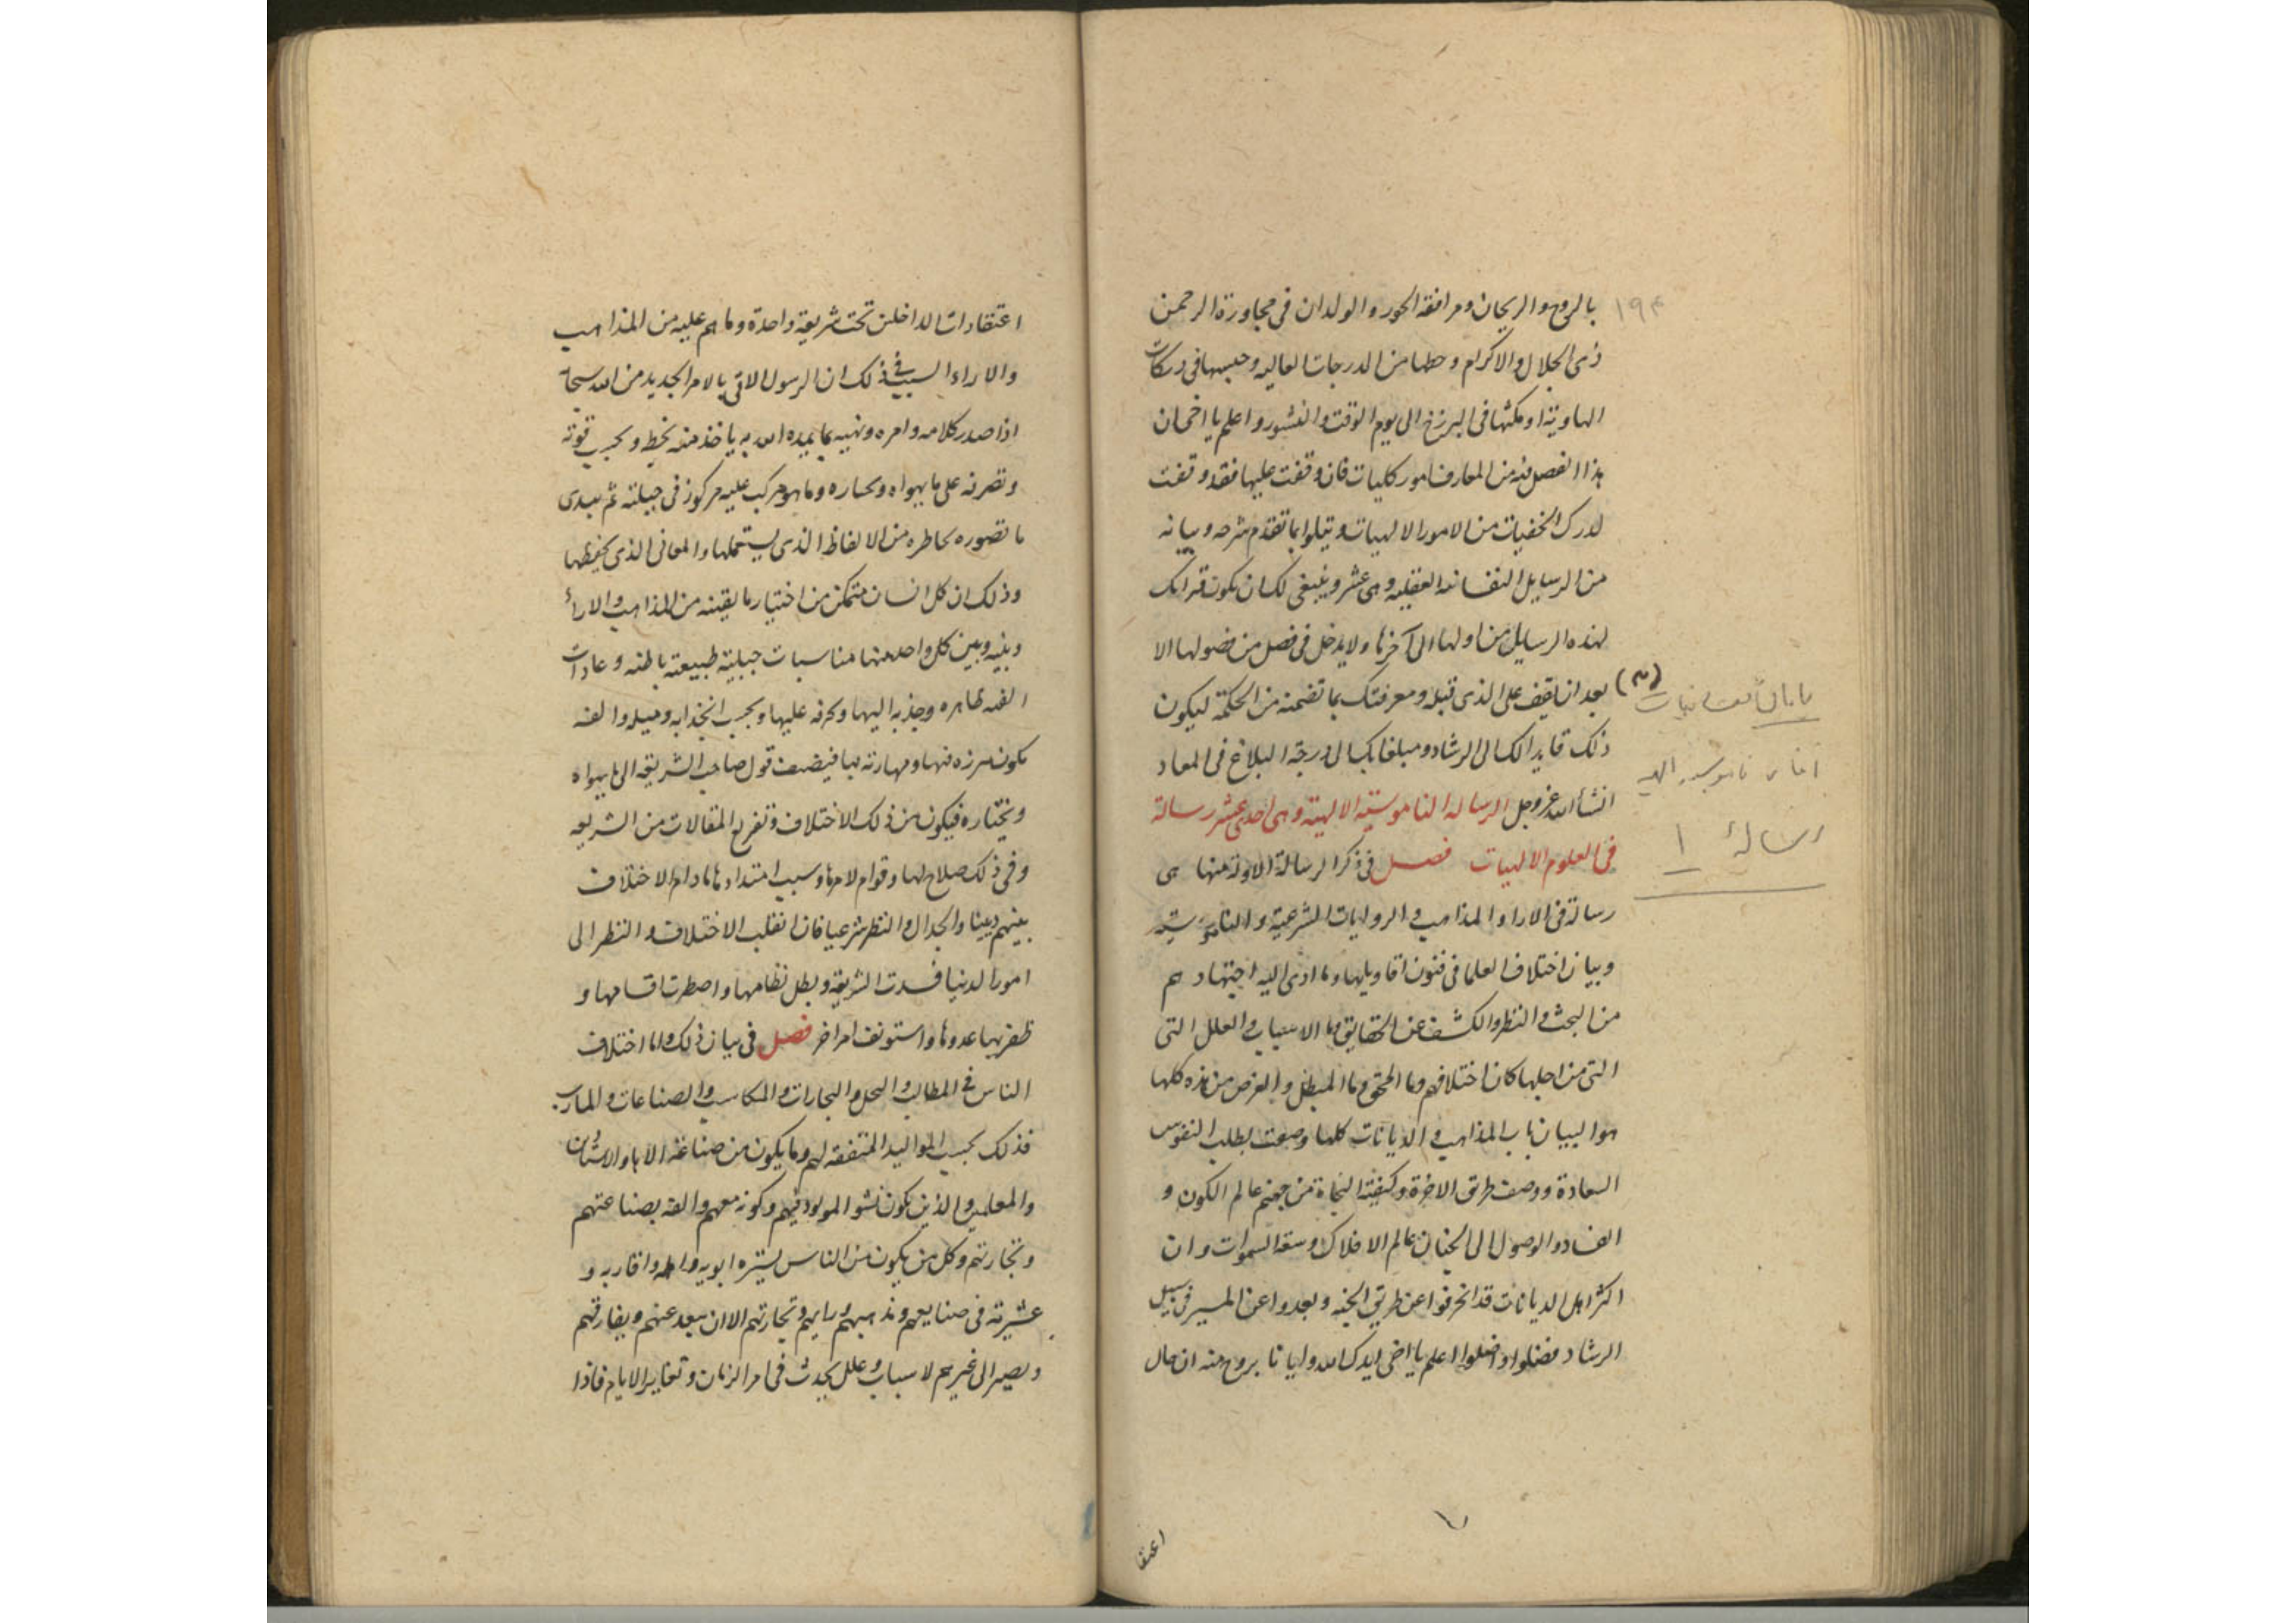 بالروح والريحان ومرافقة الحور والولدان فى مجاورة الرحمن
ذى الجلال والاكرام وحطها من الدرجات العاليه وحبسها فى دركات
الهاوية او مكثها فى البرزخ الى يوم الوقت والنشور واعلم يا اخى ان
هذا الفصل فيه من المعارف امور كليات فان وقفت عليها فقد وقفت
لدرك الخفيات من الامور الالهيات ويتلوا بما تقدم شرحه وبيانه
من الرسايل النفسانيه العقليه وهى عشر وينبغى لك ان يكون قراتك
لهذه الرسايل من اولها الى آخرها ولا يدخل فى فصل من فصولها الا
بعد ان يقف على الذى قبله ومعرفتك بما تضمنه من الحكمة ليكون
ذلك قايدا لك الى الرشاد ومبلغا بك الى درجة البلاغ فى المعاد
انشأ الله عز وجل الرسالة الناموسية الالهية وهى احدى عشر رسالة
فى العلوم الالهيات فصل فى ذكر الرسالة الاولة منها هى
رسالة فى الارا والمذاهب و الروايات الشرعية والناموسية
وبيان اختلاف العلما فى فنون اقاويلها وما ادى اليه اجتهادهم
من البحث والنظر والكشف عن الحقايق وما الاسباب والعلل التى
التى من اجلها كان اختلافهم وما المحق وما المبطل والغرض من هذه كلها
هو البيان بان المذاهب و الديانات كلها وضعت لطلب النفوس
السعادة ووصف طريق الاخرة وكيفية النجاة من جهنم عالم الكون و
الفساد والوصول الى الجنان عالم الافلاك وسعة السموات وان
اكثر اهل الديانات قد انحرفوا عن طريق الجنه وبعدوا عن المسير فى سبيل
الرشاد فضلوا واضلوا اعلم يا اخى ايدك الله وايانا بروح منه ان حال
اعتقا
١٩٤
(٣)
پایان نفسانیات
آغاز ناموسیه الهیه
رسالهٔ ١
اعتقادات الداخلين تحت شريعة واحدة وما هم عليه من المذاهب
والاراء السبب فى ذلك ان الرسول الاتى بالامر الجديد من الله سبحانه
اذا صدر كلامه وامره ونهيه بما يمده الله به ياخذ منه بحظ وبحسب قوته
وتصرفه على ما يهواه ويختاره وما هو مركب عليه مركوز فى جبلته ثم يبدى
ما تصوره بخاطره من الالفاظ الذى يستعملها والمعانى الذى يحفظها
وذلك ان كل انسان متمكن من اختيار ما يقينه من المذاهب والاراء
وبينه وبين كل واحد منها مناسبات جبلية طبيعته باطنه وعادات
الفه ظاهره وجذبه اليها وحرفه عليها وبحسب انجذابه وميله والفه
يكون مبرزه فيها ومهارته بها فيضيف قول صاحب الشريعة الى ما يهواه
ويختاره فيكون من ذلك الاختلاف وتفريع المقالات من الشريعه
وفى ذلك صلاح لها وقوام لامرها وسبب امتدادها ما دام الاختلاف
بينهم دينيا والجدال والنظر شرعيا فان انقلب الاختلاف والنظر الى
امور الدنيا فسدت الشريعة وبطل نظامها واضطرت اقسامها و
ظفر بها عدوها واستونف امر اخر فصل فى بيان ذلك واما اختلاف
الناس فى المطالب والنحل والتجارات والمكاسب والصناعات والمارب
فذلك بحسب المواليد المتفقه لهم وما يكون من صناعة الابا والاستاذان
والمعلمين والذين يكون نشو المولود فيهم وكونه معهم والفه بصناعتهم
وتجارتهم وكل من يكون من الناس يسيره ابويه واهله واقاربه و
عشيرته فى صنايعهم ومذاهبهم ورايهم وتجارتهم الا ان يبعد عنهم ويفارقهم
ويصير الى غيرهم لاسباب وعلل يحدث فى امر الزمان وتغاير الايام فاذا